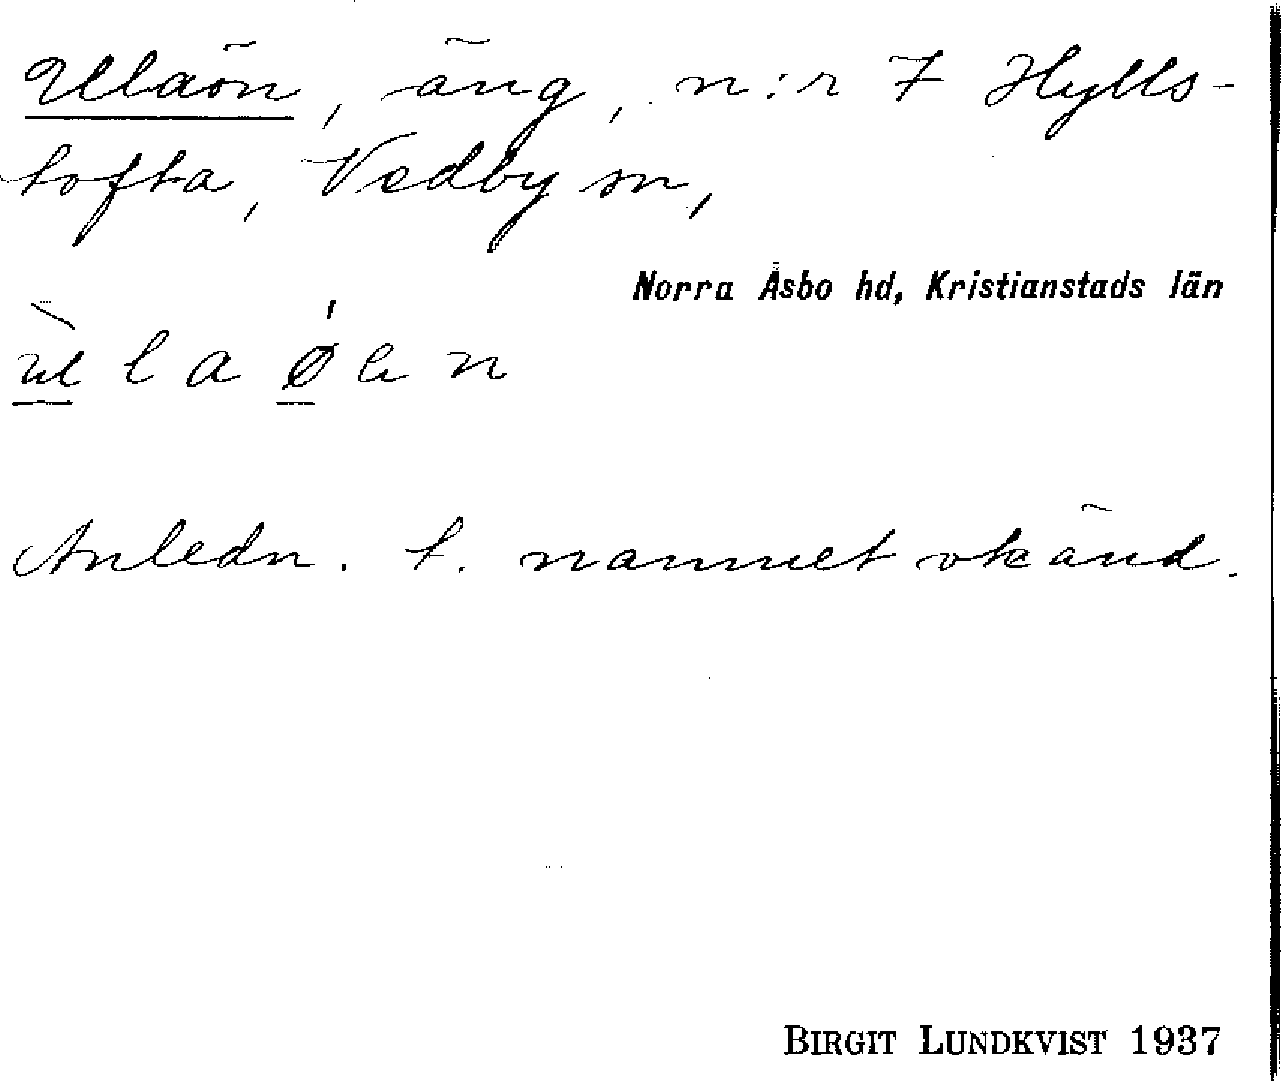 Ulaön, äng, n:r 7 Hylls-
tofta, Vedby sn,
Norra Åsbo hd, Kristianstads län
ù l a ǿ e n
Anledn. t. namnet okänd.
BIRGIT LUNDKVIST 1937